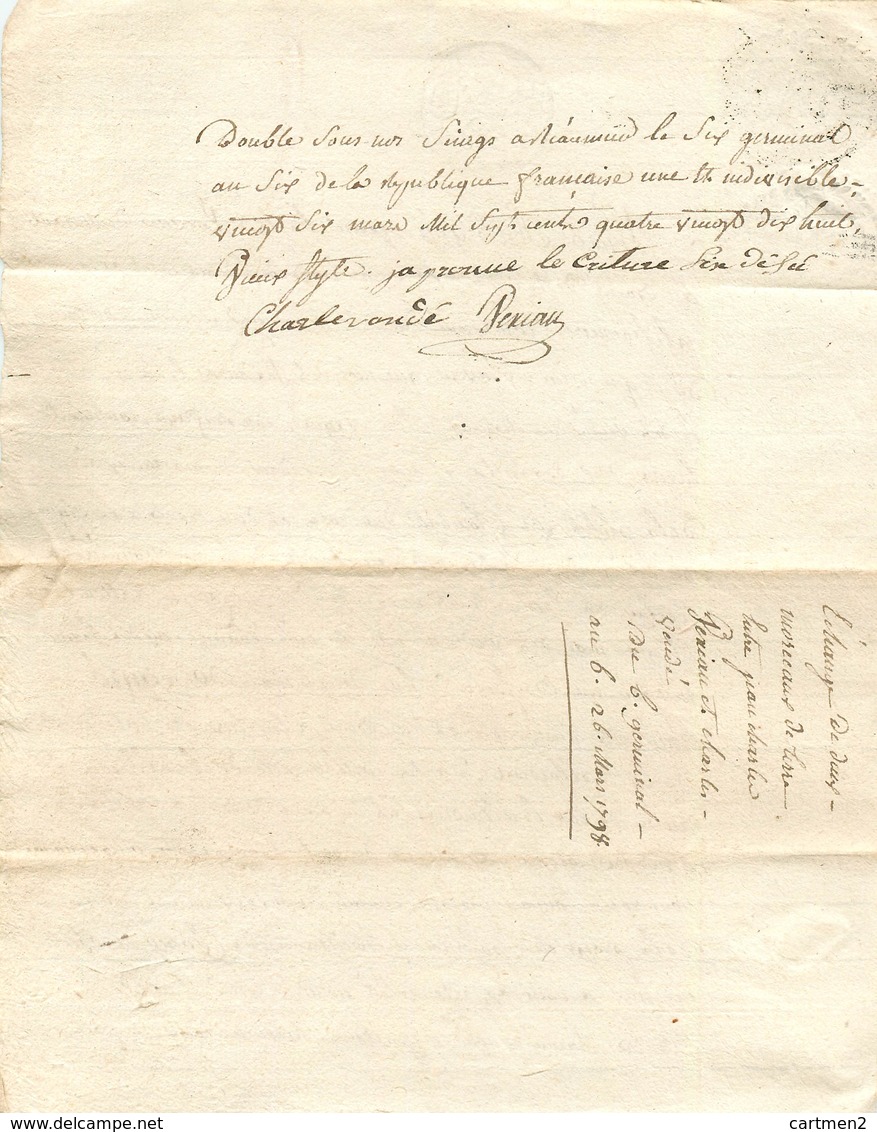 Double Sous nos Seings a Réaumur le Six germinal
au Six de la Republique française une et indivisible,
vingt Six mars Mil Sept cents quatre vingt dix huit,
Vieux Style. japrouve le Criture Six désú
Charle vandé Pexiau
Echange De deux
morceaux de terre
Entre jean charles
Pexiau et charles
vendé
Du 6. germinal
an 6. 26. Mars 1798.
delcampe.net
cartmen2